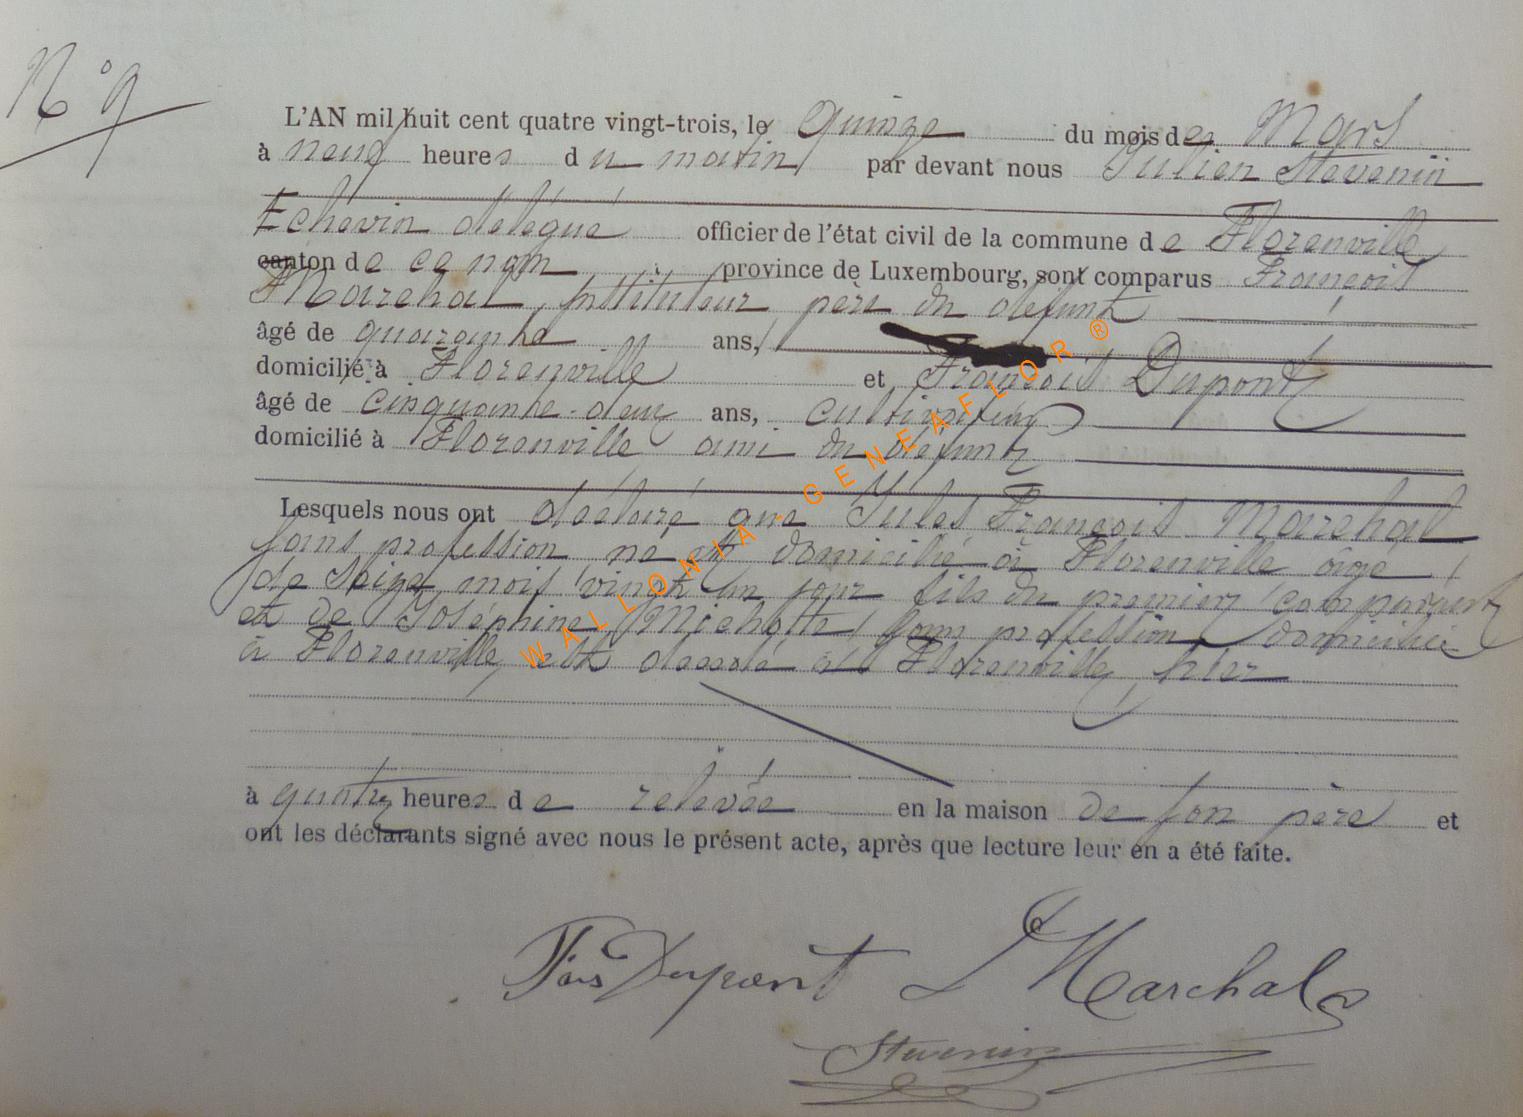 N° 9
L'AN mil huit cent quatre vingt-trois, le quinze du mois de Mars
à neuf heures du matin par devant nous Julien Stevenin
Echevin délégué officier de l'état civil de la commune de Florenville
canton de ce nom province de Luxembourg, sont comparus François
Marchal, Instituteur père du défunt
âgé de quarante ans,
domicilié à Florenville et François Dupont
âgé de cinquante-deux ans, cultivateur
domicilié à Florenville ami du défunt
Lesquels nous ont déclaré que Jules François Marchal
sans profession né et domicilié à Florenville âgé
de Seize mois vingt un jour fils du premier comparant
et de Joséphine Michotte, sans profession, domiciliée
à Florenville, est décédé à Florenville, hier
à quatre heures de relevée en la maison de son père et
ont les déclarants signé avec nous le présent acte, après que lecture leur en a été faite.
Fois Dupont Marchal
Stevenin
WALLONIA - GENEAFLOR ®